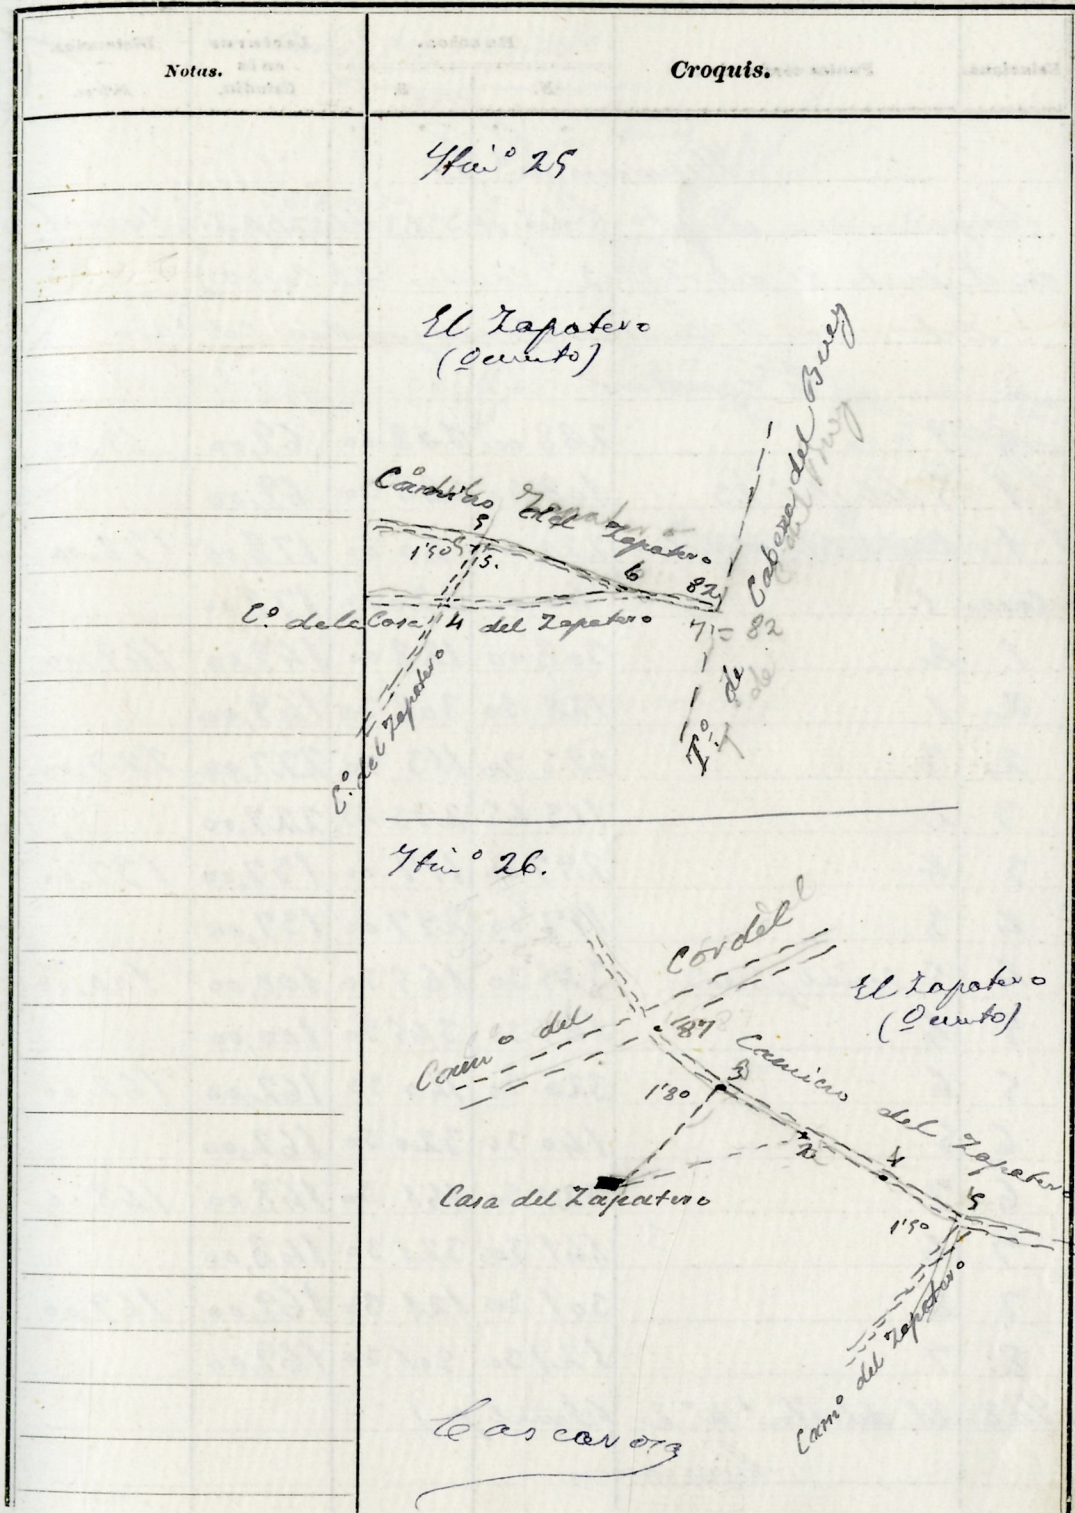 Notas.
Croquis.
Itinº 25
El Zapatero
(Quinto)
Camino del Zapatero
5
1'50
5.
6
82
Cº de la Casa del Zapatero
4
7 = 82
Cº del Zapatero
Tº de Cabeza del Buey
Itinº 26.
Camº del Cordel
El Zapatero
(Quinto)
87
Camino del Zapatero
3
1'80
2
4
5
1'50
Casa del Zapatero
Camº del Zapatero